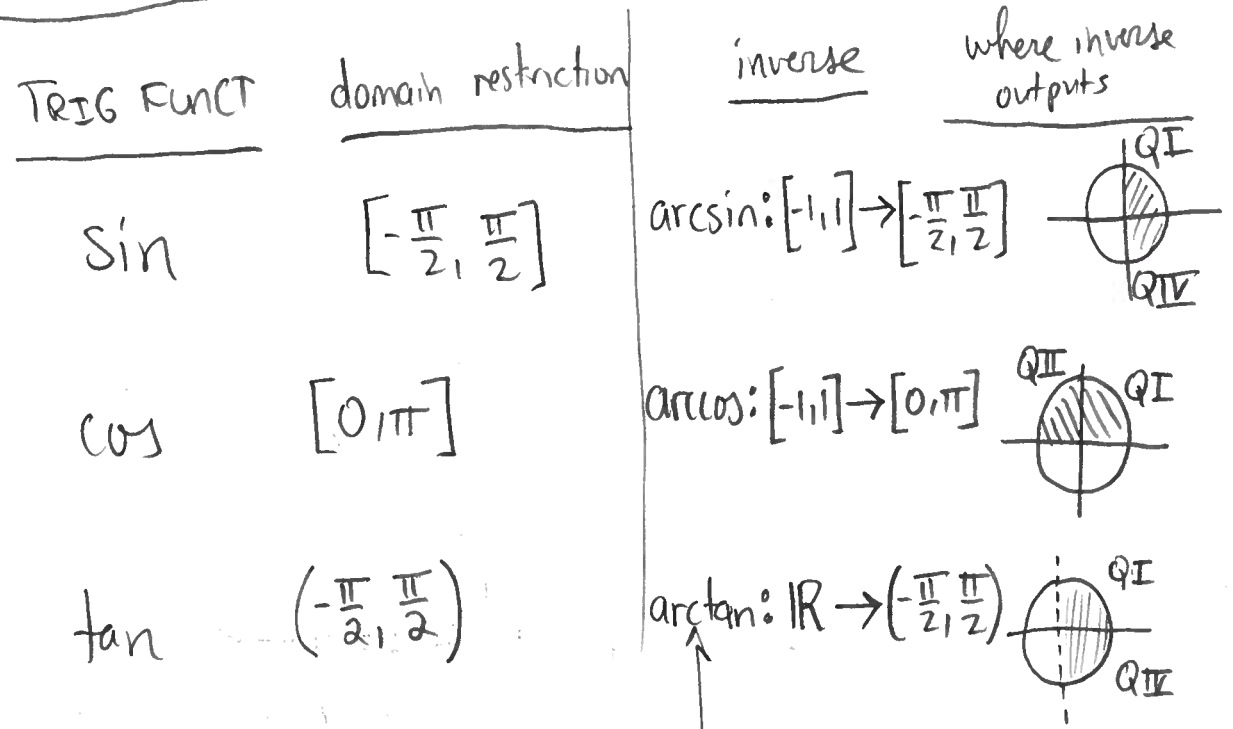 TRIG FUNCT domain restriction inverse where inverse outputs
sin [-π/2, π/2] arcsin: [-1,1] → [-π/2, π/2] QI QIV
cos [0,π] arccos: [-1,1] → [0,π] QII QI
tan (-π/2, π/2) arctan: ℝ → (-π/2, π/2) QI QIV